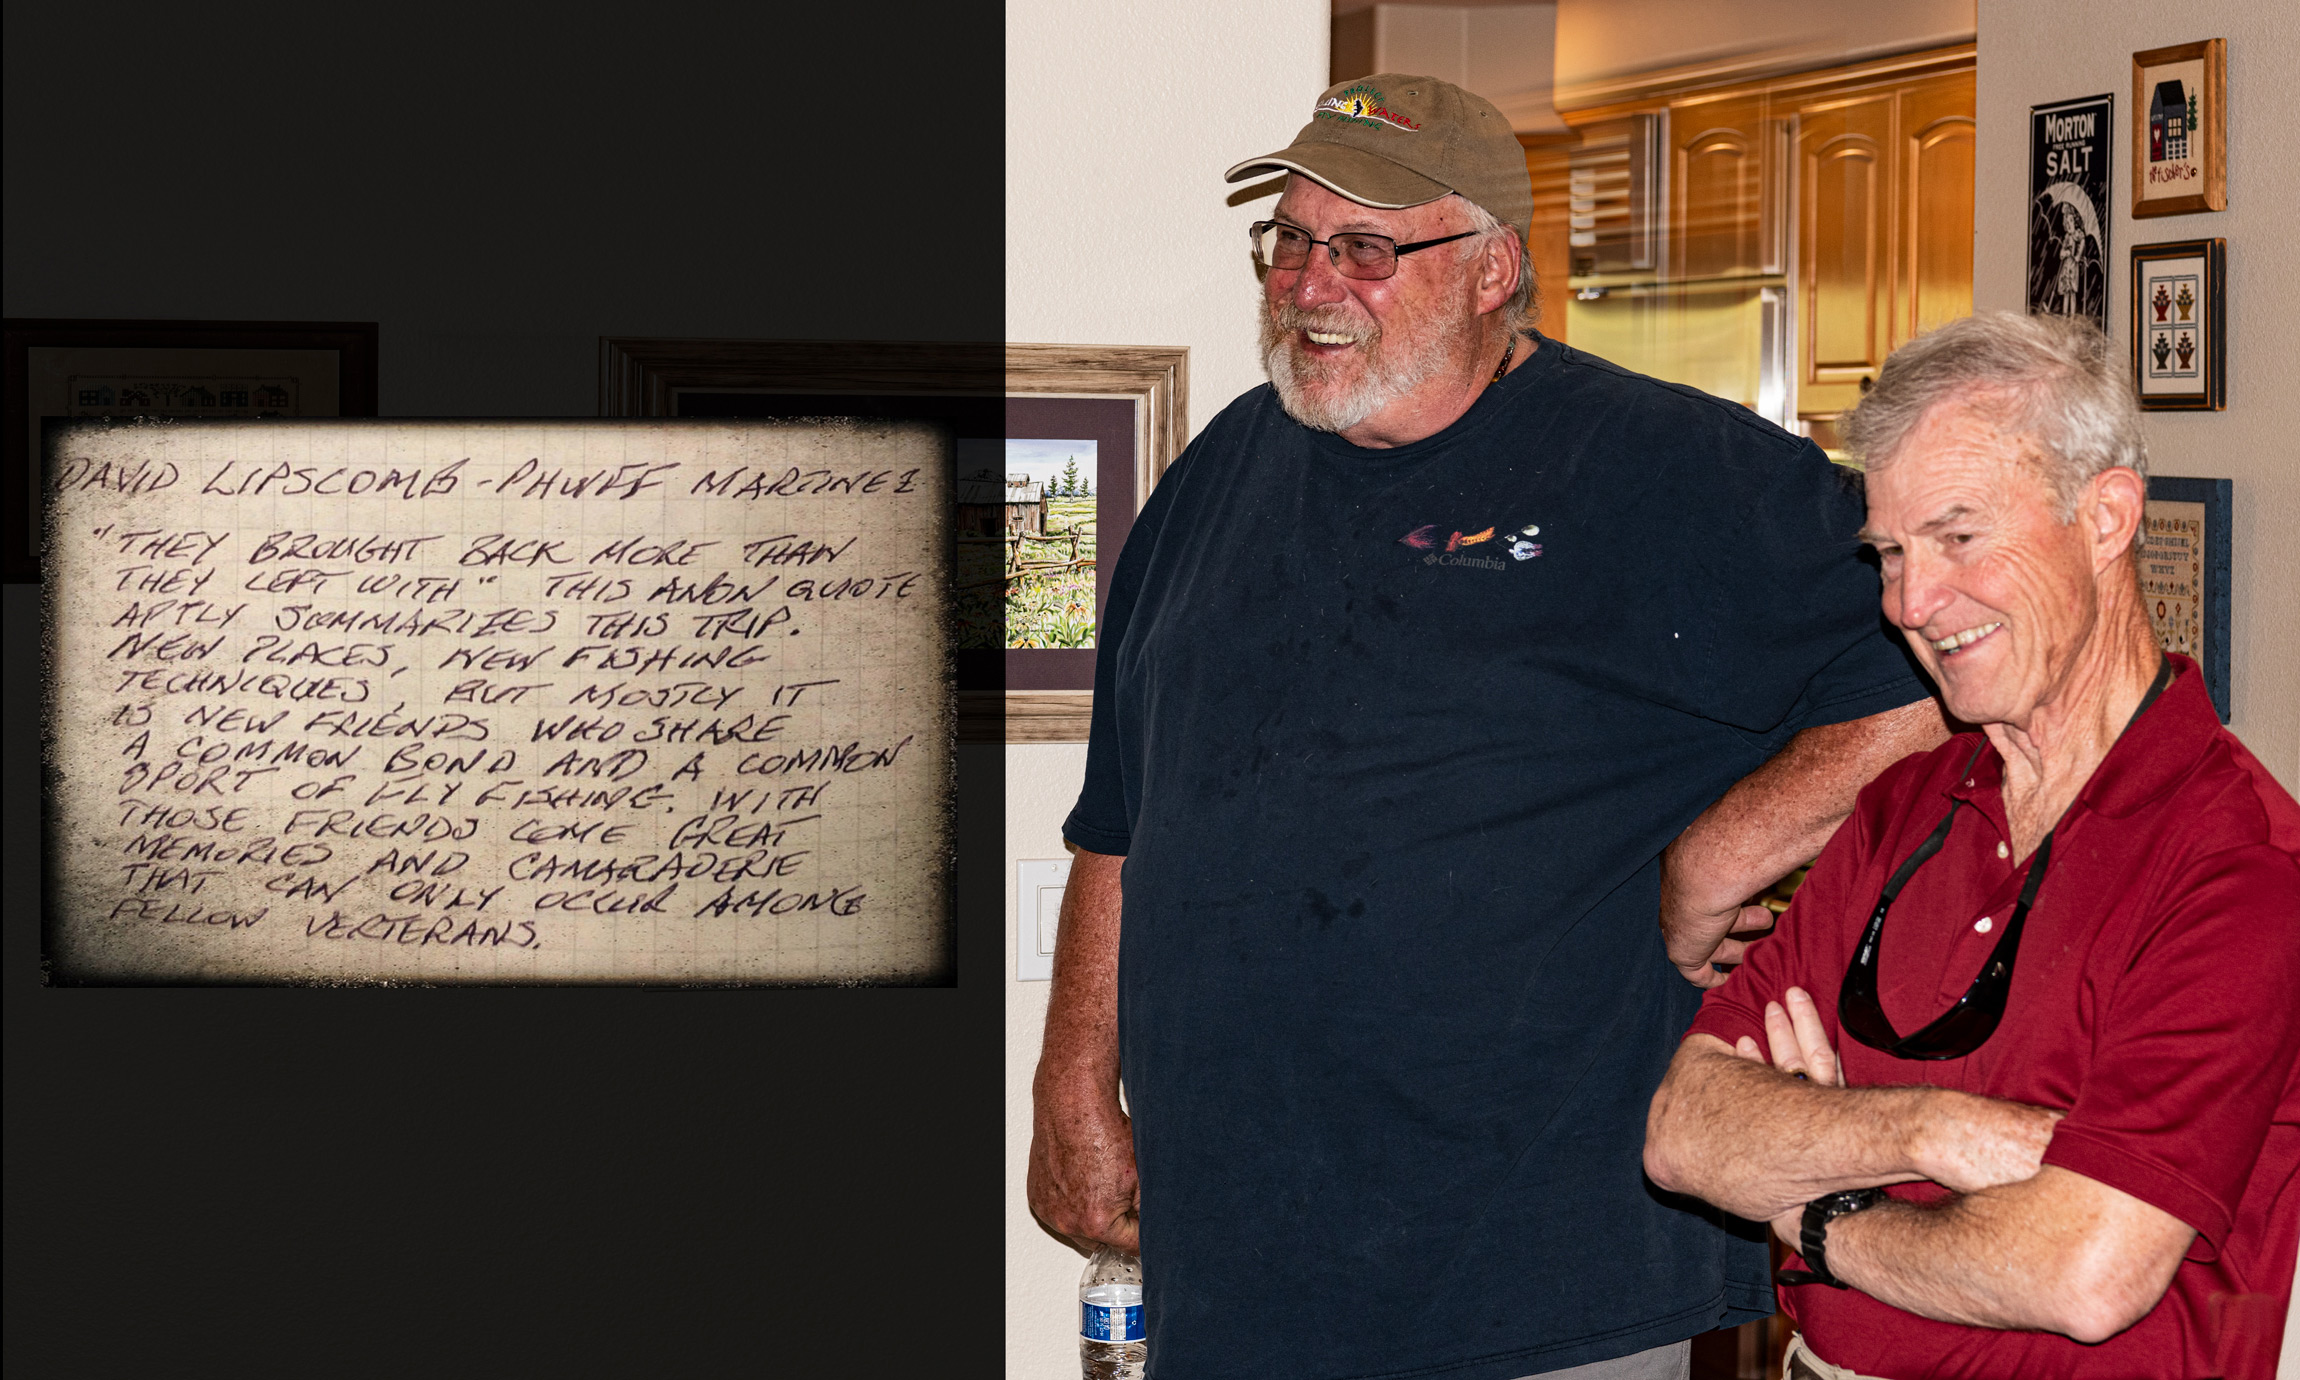 DAVID LIPSCOMB - PHWFF MARTINEZ
"THEY BROUGHT BACK MORE THAN
THEY LEFT WITH" THIS ANON QUOTE
APTLY SUMMARIZES THIS TRIP.
NEW PLACES, NEW FISHING
TECHNIQUES, BUT MOSTLY IT
IS NEW FRIENDS WHO SHARE
A COMMON BOND AND A COMMON
SPORT OF FLY FISHING. WITH
THOSE FRIENDS COME GREAT
MEMORIES AND CAMARADERIE
THAT CAN ONLY OCCUR AMONG
FELLOW VERTERANS.
PROJECT
HEALING WATERS
FLY FISHING
Columbia
MORTON
FREE RUNNING
SALT